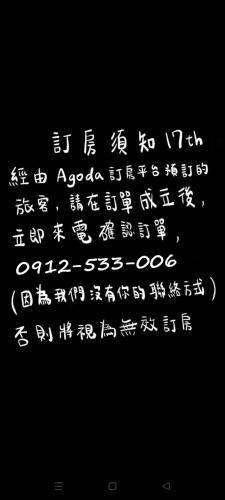 訂房須知 17th
經由 Agoda 訂房平台預訂的
旅客，請在訂單成立後，
立即來電確認訂單，
0912-533-006
(因為我們沒有你的聯絡方式)
否則將視為無效訂房